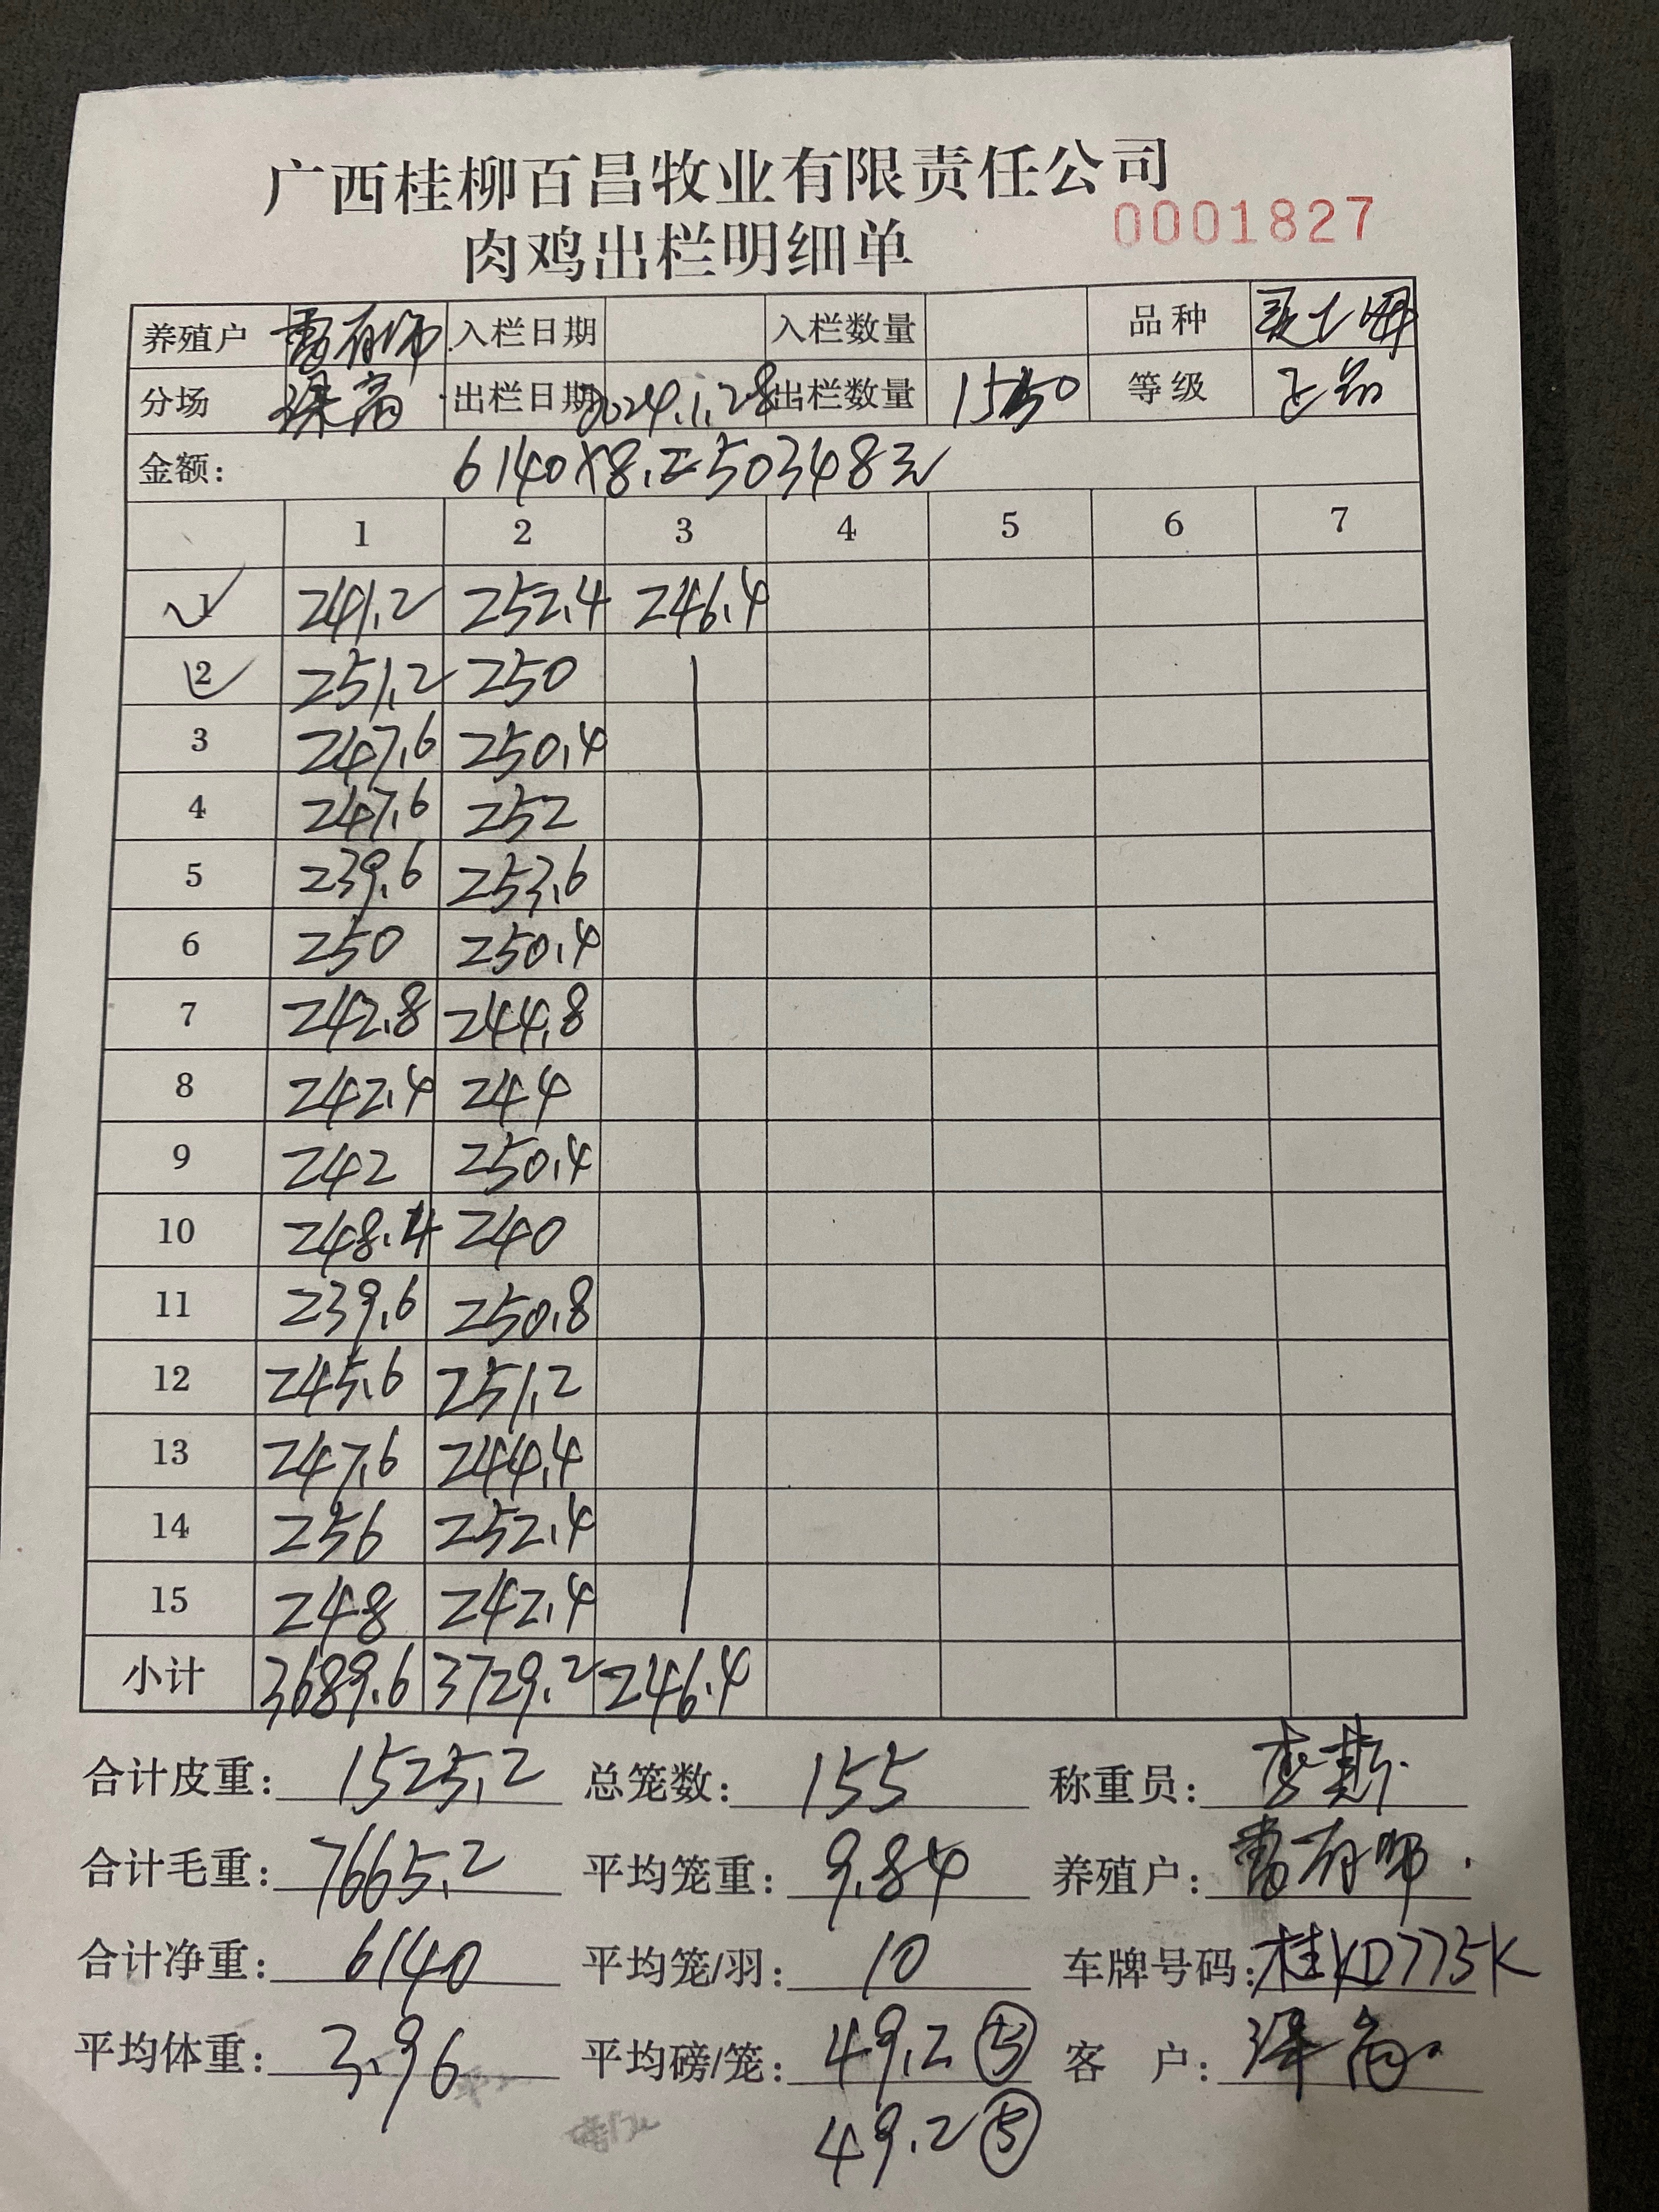 广西桂柳百昌牧业有限责任公司
0001827
肉鸡出栏明细单
养殖户 入栏日期 入栏数量 品种
分场 出栏日期 2024.1.28 出栏数量 1550 等级 正品
金额: 6140×8.2=50348元
1 2 3 4 5 6 7
1 241.2 252.4 246.4
2 251.2 250
3 247.6 250.4
4 247.6 252
5 239.6 253.6
6 250 250.4
7 242.8 244.8
8 242.4 244
9 242 250.4
10 248.4 240
11 239.6 250.8
12 245.6 251.2
13 247.6 244.4
14 256 252.4
15 248 242.4
小计 3689.6 3729.2 246.4
合计皮重: 1525.2 总笼数: 155 称重员:
合计毛重: 7665.2 平均笼重: 9.84 养殖户:
合计净重: 6140 平均笼/羽: 10 车牌号码: 桂KD775K
平均体重: 3.96 平均磅/笼: 49.2 ⑤ 客 户:
49.2 ⑤